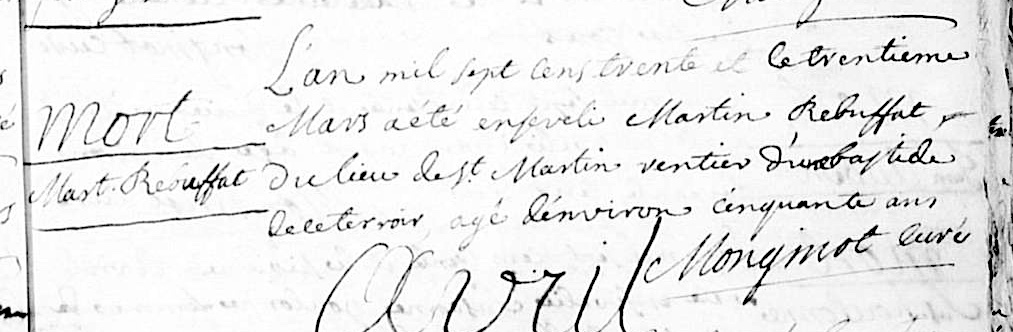 L'an mil sept cens trente et le trentieme
Mort
Mars a été enseveli Martin Rebuffat,
Mart. Rebuffat
du lieu de St. Martin rentier d'une bastide
de ce terroir, agé d'environ cinquante ans
Monginot curé
Avril